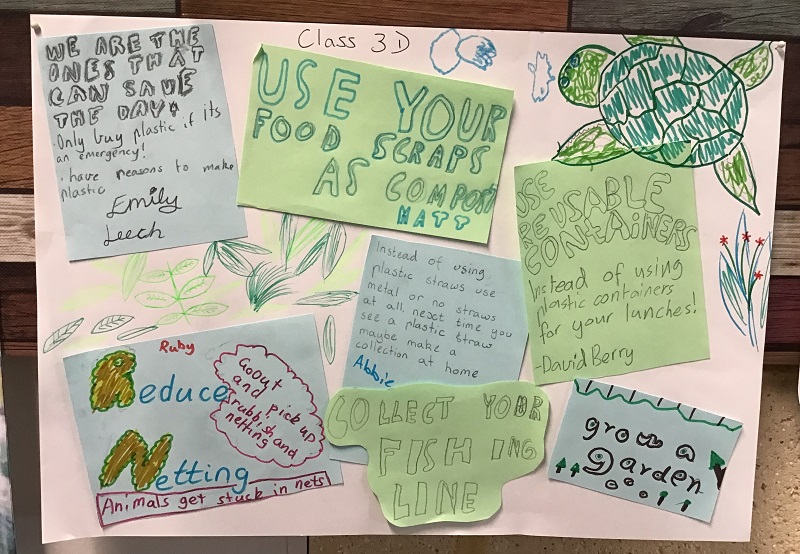 Class 3D
WE ARE THE
ONES THAT
CAN SAVE
THE DAY!
·Only buy plastic if its
an emergency!
· have reasons to make
plastic
Emily
Leech
USE YOUR
FOOD SCRAPS
AS COMPOST
MATT
USE
REUSABLE
CONTAINERS
Instead of using
plastic containers
for your lunches!
-David Berry
Instead of using
plastic straws use
metal or no straws
at all. next time you
see a plastic straw
maybe make a
collection at home
Abbie
Ruby
Reduce
Netting
GoOut
and pick up
rubbish and
netting
Animals get stuck in nets
COLLECT YOUR
FISHING
LINE
grow a
garden